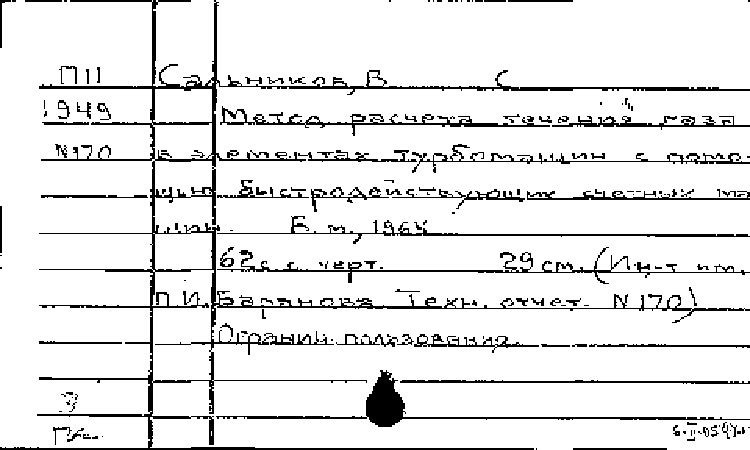 П11 Сальников, В С
1949 Метод расчета течения газа
N170 в элементах турбомашин с помо-
щью быстродействующих счетных ма-
шин. Б.м., 196
62с. с черт. 29 см. (Ин-т им.
П.И. Баранова Техн. отчет. N 170)
Огранич. пользования.